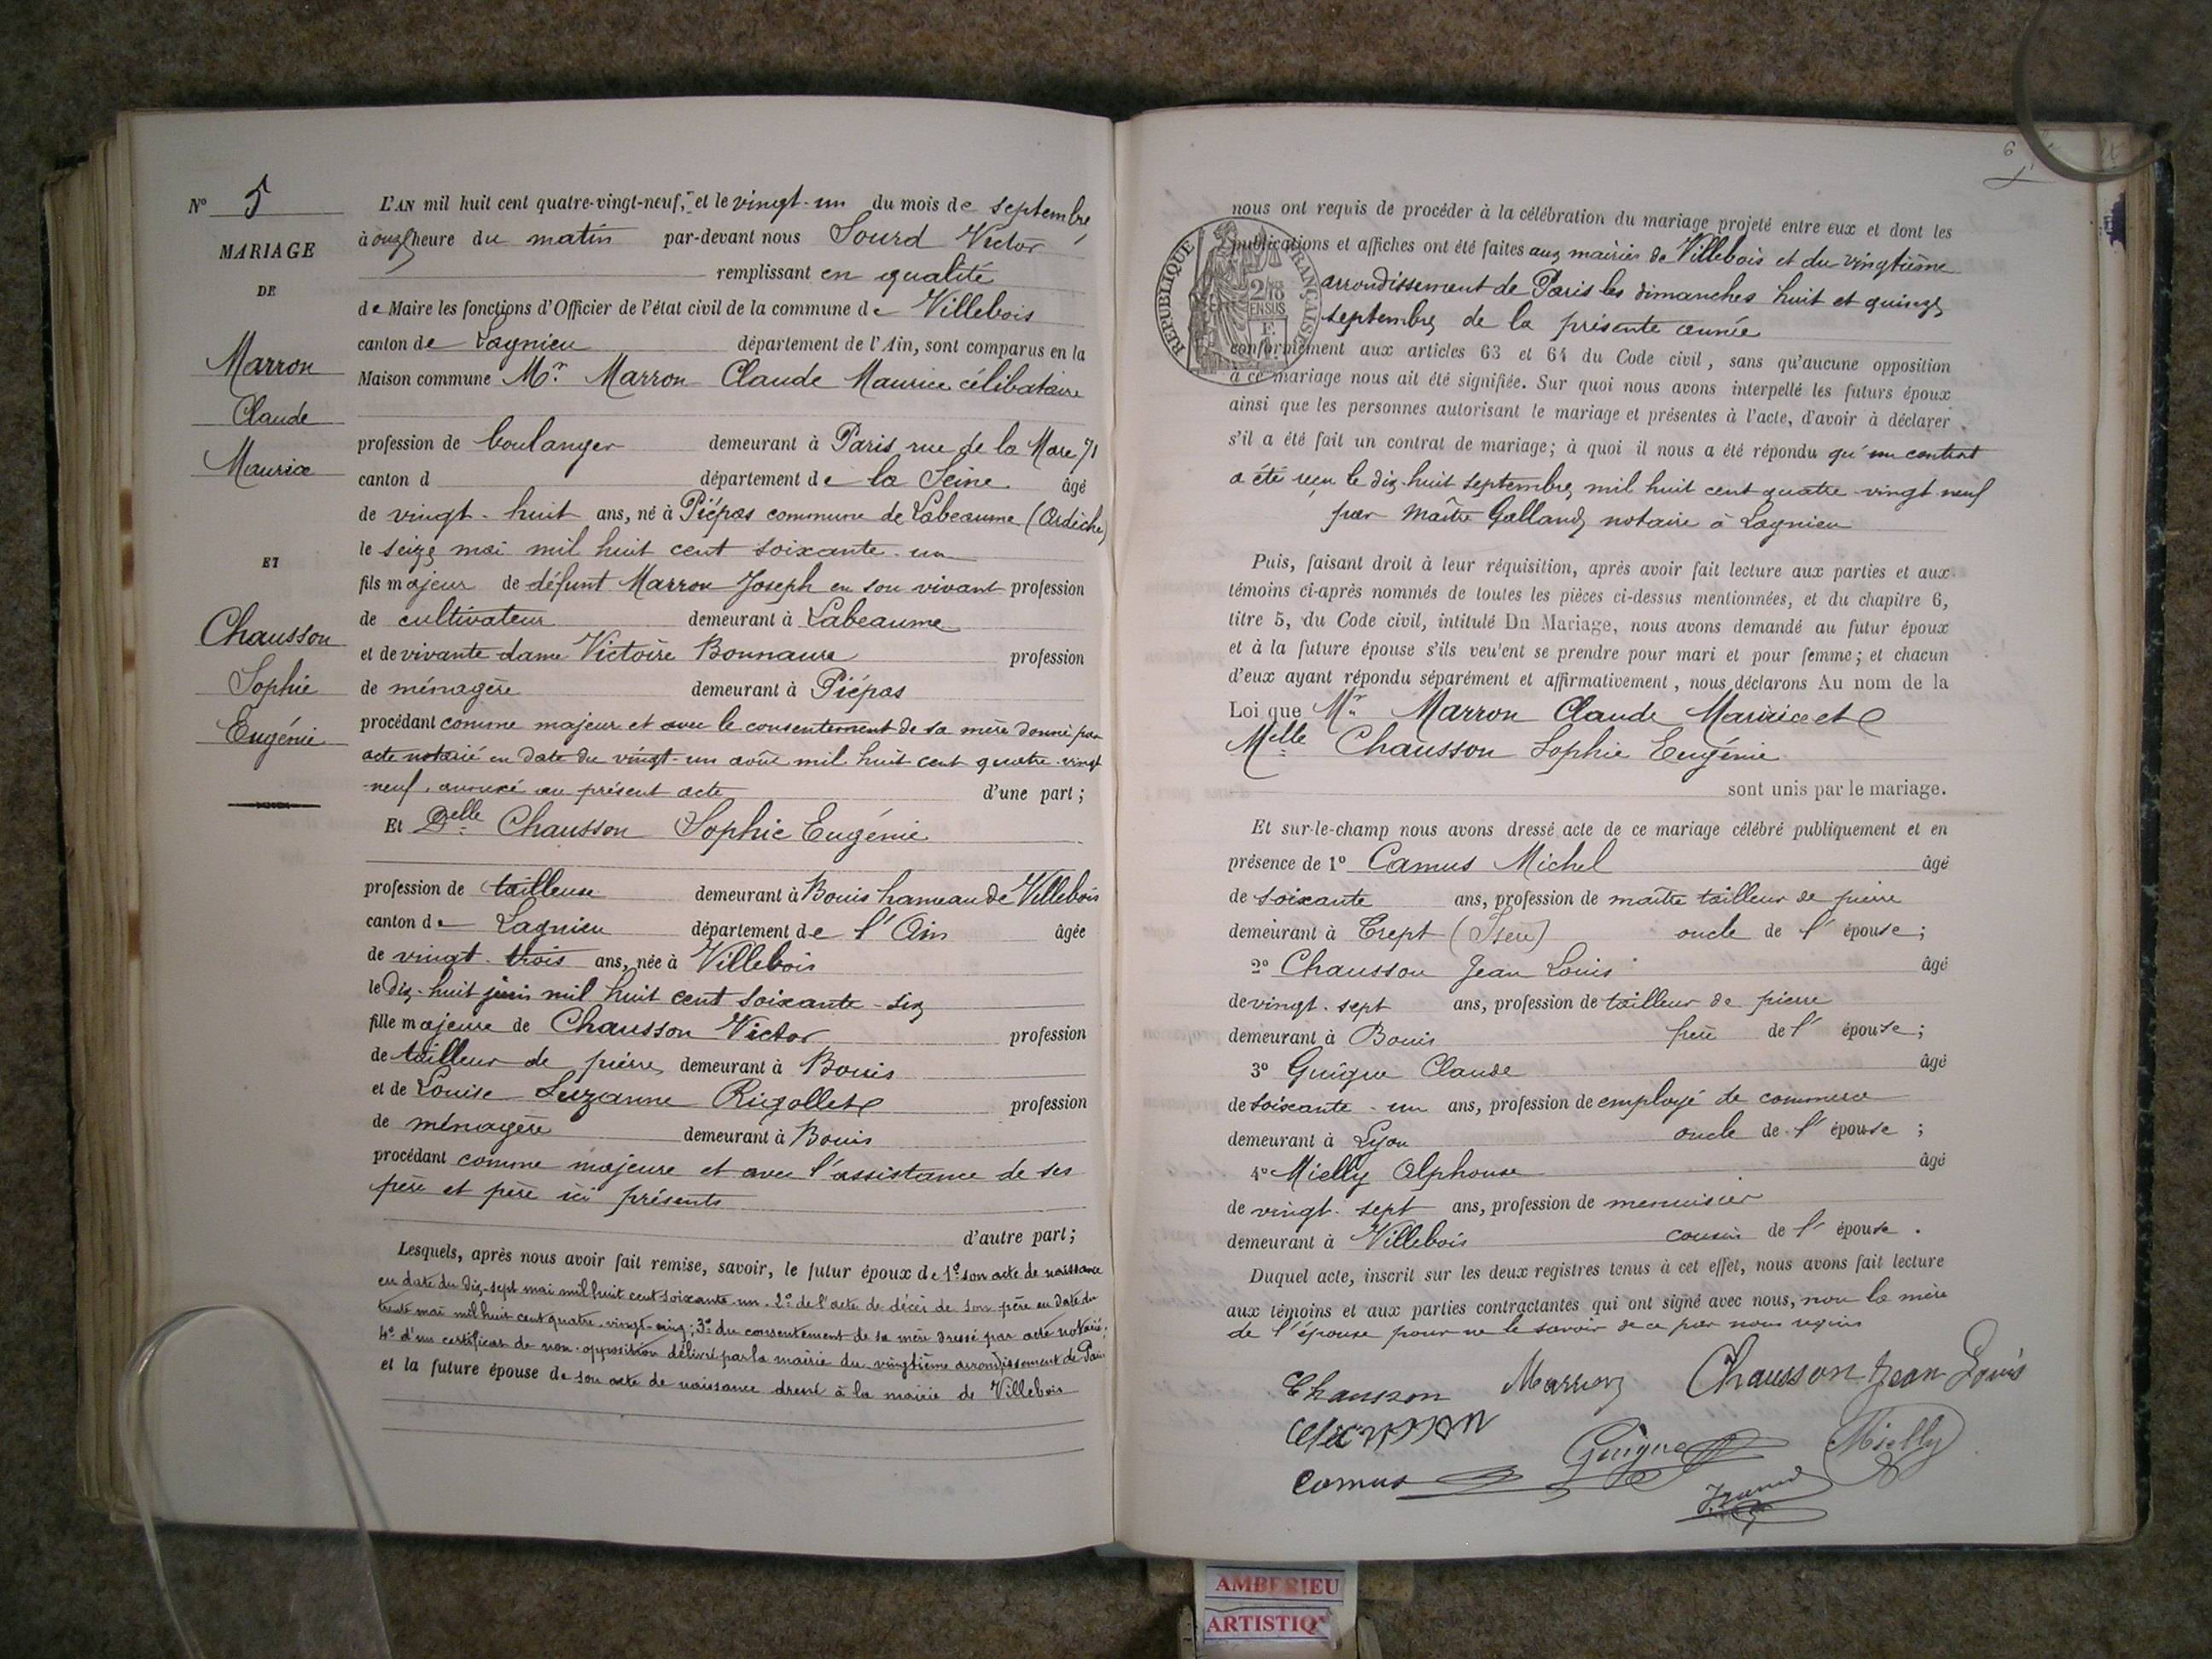 N° 5
MARIAGE
DE
Marron
Claude
Maurice
ET
Chausson
Sophie
Eugénie
L'AN mil huit cent quatre-vingt-neuf, et le vingt-un du mois de septembre
à onze heure du matin par-devant nous Sourd Victor
remplissant en qualité
de Maire les fonctions d'Officier de l'état civil de la commune de Villebois
canton de Lagnieu département de l'Ain, sont comparus en la
Maison commune Mr Marron Claude Maurice célibataire
profession de boulanger demeurant à Paris rue de la Mare 71
canton d département de la Seine âgé
de vingt-huit ans, né à Piépas commune de Labeaume (Ardèche)
le seize mai mil huit cent soixante-un
fils majeur de défunt Marron Joseph en son vivant profession
de cultivateur demeurant à Labeaume
et de vivante dame Victoire Bonnaure profession
de ménagère demeurant à Piépas
procédant comme majeur et avec le consentement de sa mère donné par
acte notarié en date du vingt-un août mil huit cent quatre-vingt
neuf, annexé au présent acte d'une part;
Et Delle Chausson Sophie Eugénie
profession de tailleuse demeurant à Bouis hameau de Villebois
canton de Lagnieu département de l'Ain âgée
de vingt-trois ans, née à Villebois
le dix-huit juin mil huit cent soixante-six
fille majeure de Chausson Victor profession
de tailleur de pierre demeurant à Bouis
et de Louise Suzanne Rigollet profession
de ménagère demeurant à Bouis
procédant comme majeure et avec l'assistance de ses
père et père ici présents
d'autre part;
Lesquels, après nous avoir fait remise, savoir, le futur époux de 1° son acte de naissance
en date du dix-sept mai mil huit cent soixante-un. 2° de l'acte de décès de son père en date du
trente mai mil huit cent quatre-vingt-cinq; 3° du consentement de sa mère dressé par acte notarié;
4° d'un certificat de non-opposition délivré par la mairie du vingtième arrondissement de Paris
et la future épouse de son acte de naissance dressé à la mairie de Villebois
6
nous ont requis de procéder à la célébration du mariage projeté entre eux et dont les
publications et affiches ont été faites aux mairies de Villebois et du vingtième
arrondissement de Paris les dimanches huit et quinze
septembre de la présente année
REPUBLIQUE FRANÇAISE
2/10 EN SUS
conformément aux articles 63 et 64 du Code civil, sans qu'aucune opposition
à ce mariage nous ait été signifiée. Sur quoi nous avons interpellé les futurs époux
ainsi que les personnes autorisant le mariage et présentes à l'acte, d'avoir à déclarer
s'il a été fait un contrat de mariage; à quoi il nous a été répondu qu'un contrat
a été reçu le dix-huit septembre mil huit cent quatre-vingt neuf
par Maître Galland notaire à Lagnieu
Puis, faisant droit à leur réquisition, après avoir fait lecture aux parties et aux
témoins ci-après nommés de toutes les pièces ci-dessus mentionnées, et du chapitre 6,
titre 5, du Code civil, intitulé Du Mariage, nous avons demandé au futur époux
et à la future épouse s'ils veu'ent se prendre pour mari et pour femme; et chacun
d'eux ayant répondu séparément et affirmativement, nous déclarons Au nom de la
Loi que Mr Marron Claude Maurice et
Melle Chausson Sophie Eugénie
sont unis par le mariage.
Et sur-le-champ nous avons dressé acte de ce mariage célébré publiquement et en
présence de 1° Camus Michel âgé
de soixante ans, profession de maître tailleur de pierre
demeurant à Trept (Isère) oncle de l'épouse;
2° Chausson Jean Louis âgé
de vingt-sept ans, profession de tailleur de pierre
demeurant à Bouis frère de l'épouse;
3° Guigue Claude âgé
de soixante-un ans, profession de employé de commerce
demeurant à Lyon oncle de l'épouse;
4° Mielly Alphonse âgé
de vingt-sept ans, profession de menuisier
demeurant à Villebois cousin de l'épouse.
Duquel acte, inscrit sur les deux registres tenus à cet effet, nous avons fait lecture
aux témoins et aux parties contractantes qui ont signé avec nous, non la mère
de l'épouse pour ne le savoir de ce par nous requis
Chausson Marron Chausson Jean Louis
Chausson Guigue Mielly
Camus
AMBERIEU
ARTISTIQ